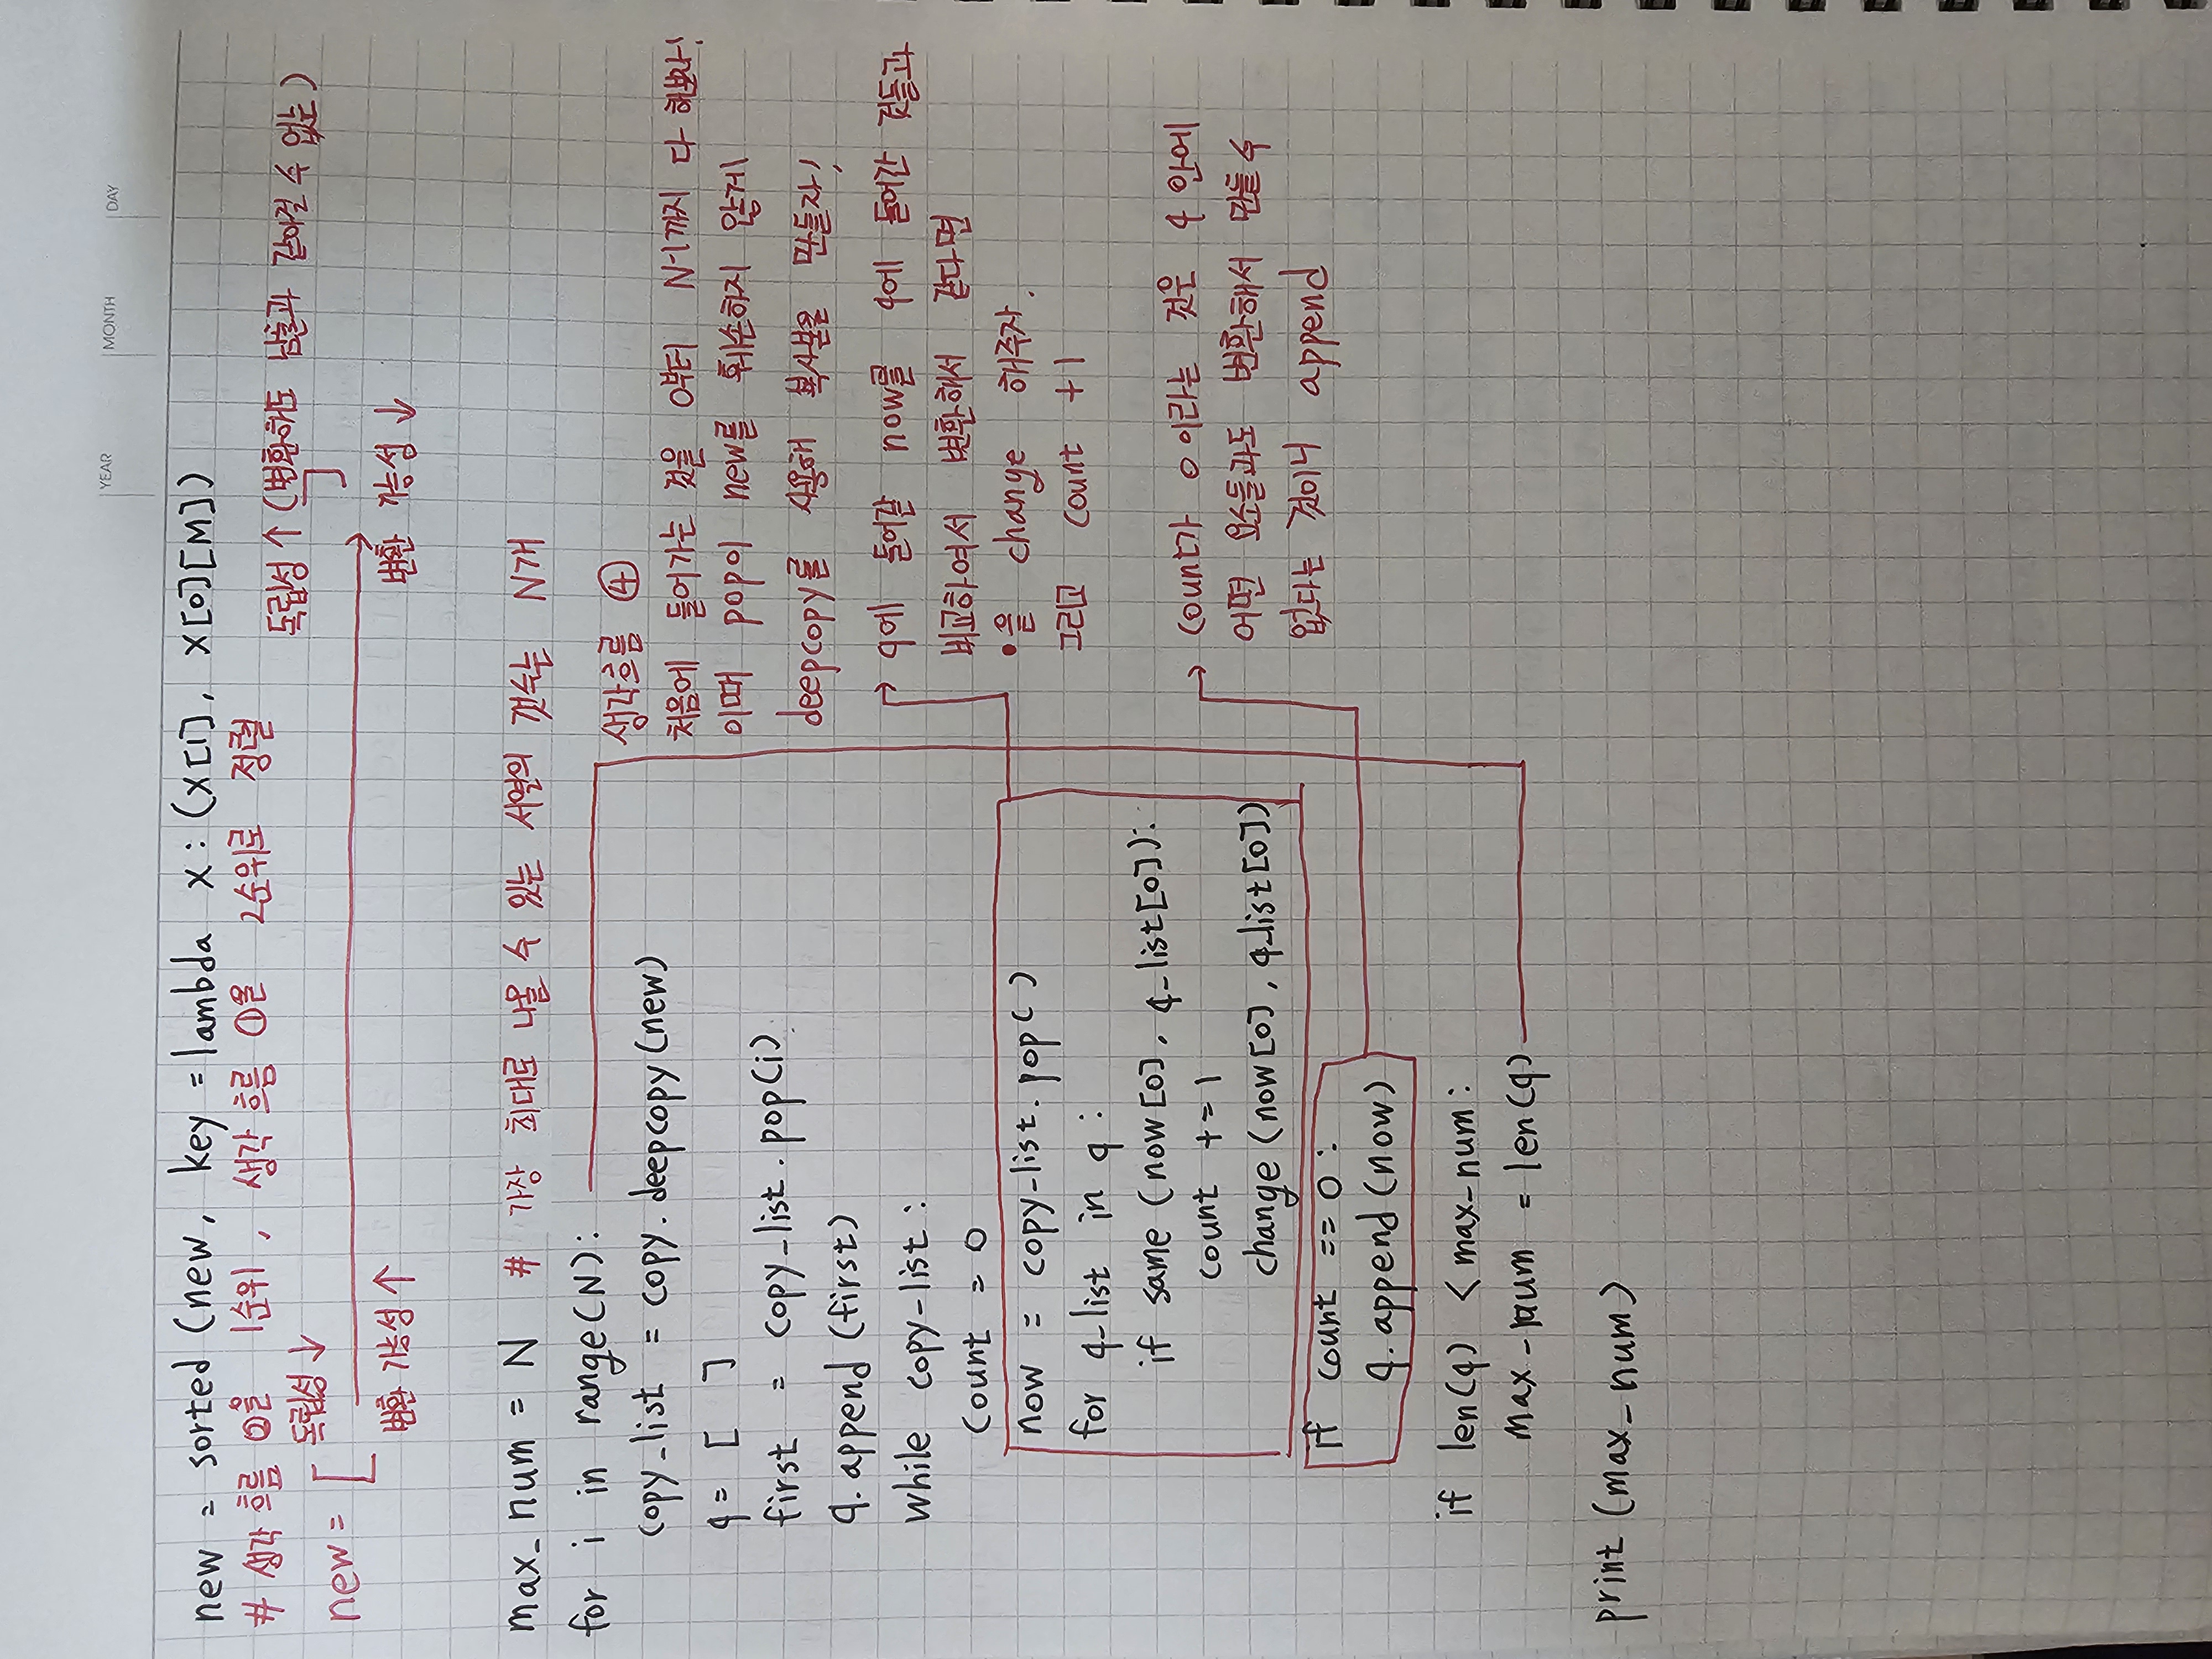 YEAR MONTH DAY
new = sorted (new, key = lambda x : (x[1], x[0][M])
# 생각 흐름 ②을 1순위, 생각 흐름 ①을 2순위로 정렬
독립성 ↓ 독립성 ↑ (변환해도 남들과 같아질 수 없는)
new = [ ]
변환 가능성 ↑ 변환 가능성 ↓
max_num = N # 가장 최대로 나올 수 있는 서열의 갯수는 N개
for i in range(N):
copy_list = copy.deepcopy(new)
q = [ ]
first = copy_list.pop(i)
q.append(first)
while copy-list :
count = 0
now = copy-list.pop( )
for q-list in q :
if same (now[0], q_list[0]):
count += 1
change (now[0], q_list[0])
if count == 0 :
q.append(now)
if len(q) < max_num :
max_num = len(q)
print (max_num)
생각흐름 ④
처음에 들어가는 것을 0부터 N-1까지 다 해보자!
이때 pop이 new를 훼손하지 않게
deepcopy를 사용해 복사본을 만들자!
→ q에 들어갈 now를 q에 들어간 것들과
비교하여서 변환해서 같다면
•을 change 해주자.
그리고 count +1
→ count가 0이라는 것은 q 안에
어떤 요소들과도 변환해서 만들 수
없다는 것이니 append